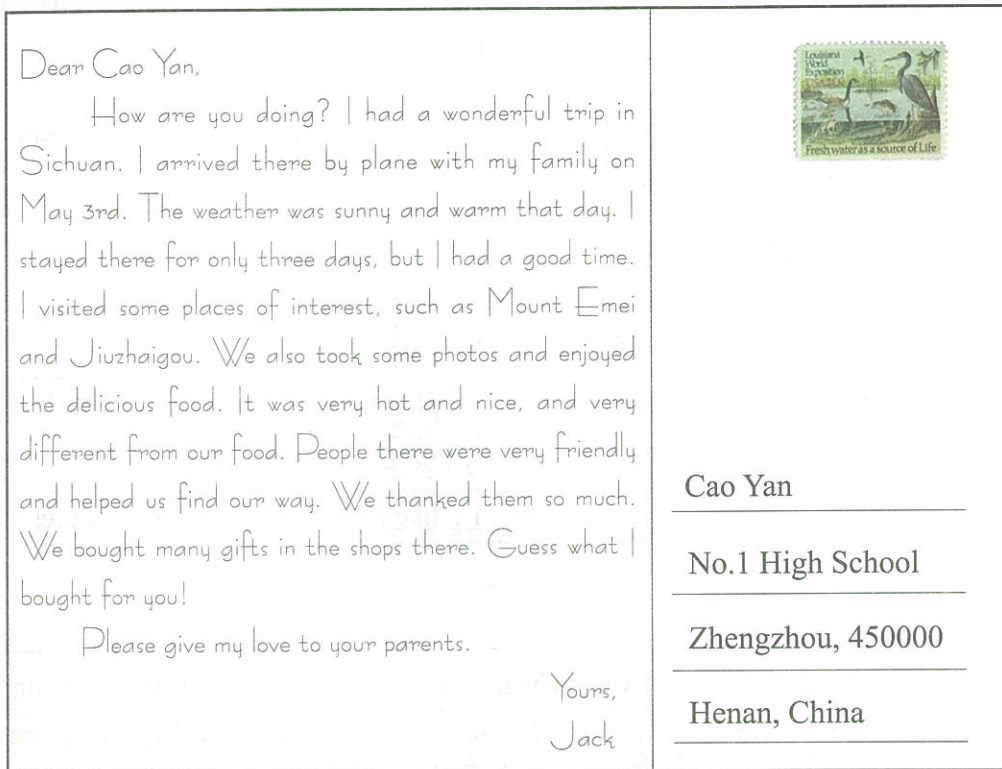 Dear Cao Yan,
How are you doing? I had a wonderful trip in
Sichuan. I arrived there by plane with my family on
May 3rd. The weather was sunny and warm that day. I
stayed there for only three days, but I had a good time.
I visited some places of interest, such as Mount Emei
and Jiuzhaigou. We also took some photos and enjoyed
the delicious food. It was very hot and nice, and very
different from our food. People there were very friendly
and helped us find our way. We thanked them so much.
We bought many gifts in the shops there. Guess what I
bought for you!
Please give my love to your parents.
Yours,
Jack
Louisiana
World
Exposition
USA 20c
Fresh water as a source of Life
Cao Yan
No.1 High School
Zhengzhou, 450000
Henan, China